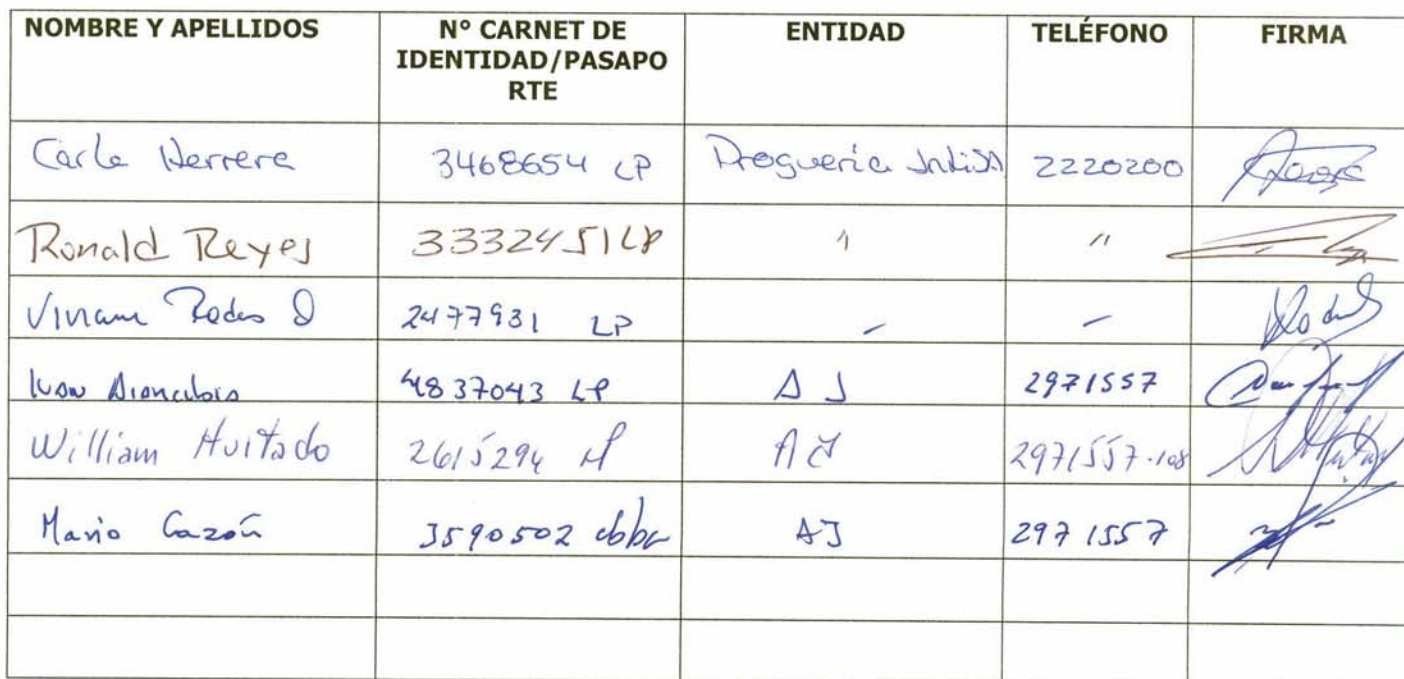 NOMBRE Y APELLIDOS N° CARNET DE IDENTIDAD/PASAPORTE ENTIDAD TELÉFONO FIRMA
Carla Herrera 3468654 LP Droguería Inti SA 2220200
Ronald Reyes 3332451 LP " "
2477931 LP - -
4837043 LP AJ 2971557
William Hurtado 2615294 AJ 2971557-108
Mario Cazón 3590502 cbba AJ 2971557